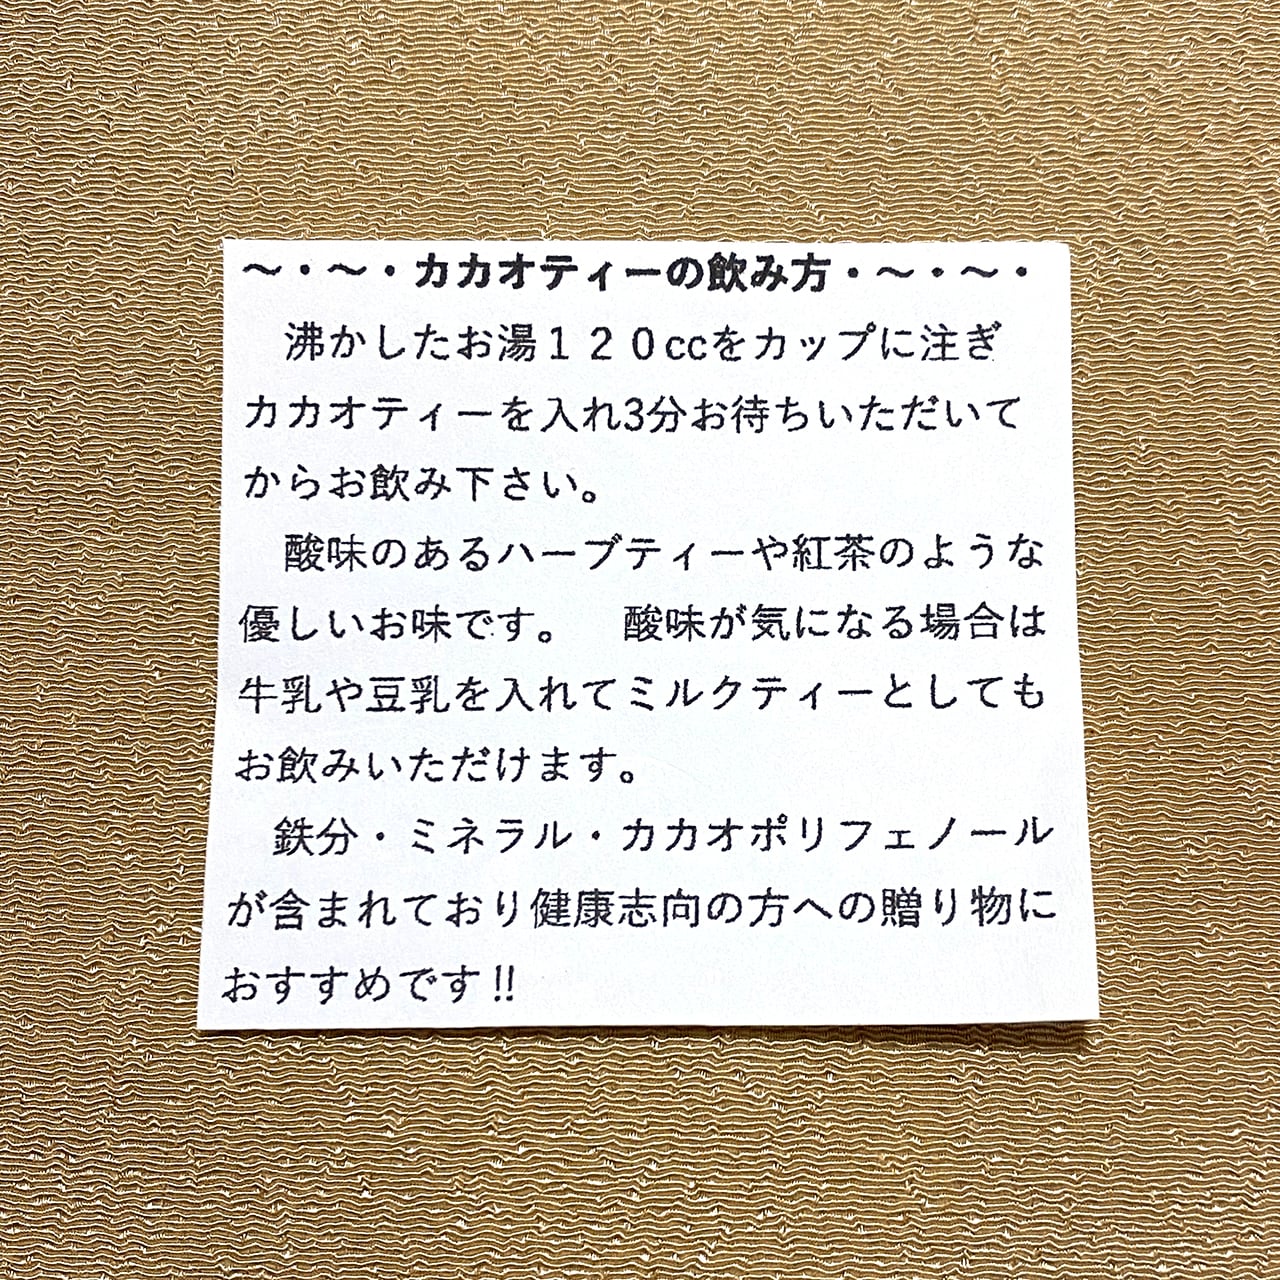 ～・～・カカオティーの飲み方・～・～・
　沸かしたお湯１２０ccをカップに注ぎ
カカオティーを入れ3分お待ちいただいて
からお飲み下さい。
　酸味のあるハーブティーや紅茶のような
優しいお味です。　酸味が気になる場合は
牛乳や豆乳を入れてミルクティーとしても
お飲みいただけます。
　鉄分・ミネラル・カカオポリフェノール
が含まれており健康志向の方への贈り物に
おすすめです!!